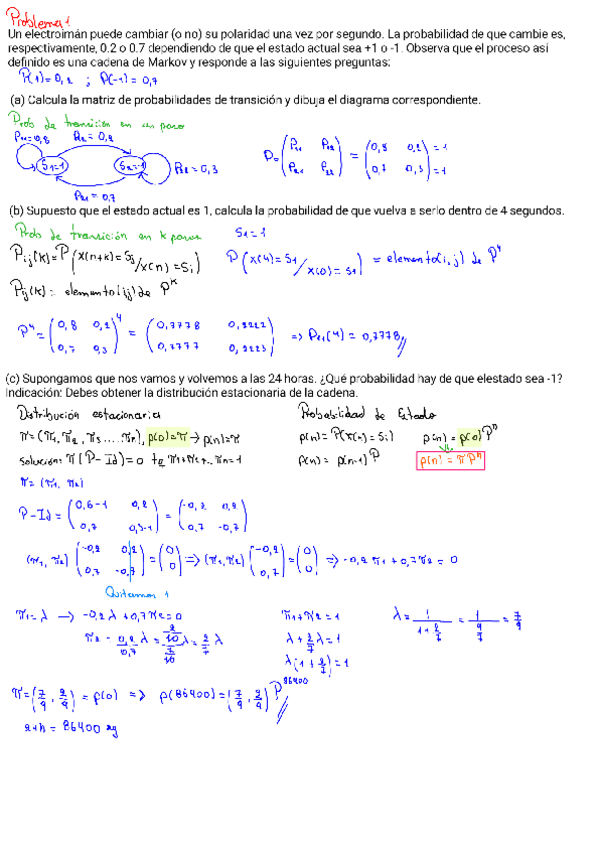 Problema 1
Un electroimán puede cambiar (o no) su polaridad una vez por segundo. La probabilidad de que cambie es,
respectivamente, 0.2 o 0.7 dependiendo de que el estado actual sea +1 o -1. Observa que el proceso así
definido es una cadena de Markov y responde a las siguientes preguntas:
P(1)=0,2 ; P(-1)=0,7
(a) Calcula la matriz de probabilidades de transición y dibuja el diagrama correspondiente.
Prob de transición en un paso
P11=0,8 P12=0,2
S1=1 S2=-1 P22=0,3
P21=0,7
P= (P11 P12 / P21 P22) = (0,8 0,2 / 0,7 0,3) =1 =1
(b) Supuesto que el estado actual es 1, calcula la probabilidad de que vuelva a serlo dentro de 4 segundos.
Prob de transición en k pasos S1=1
Pij(k)=P(x(n+k)=Sj/x(n)=Si) P(x(4)=S1/x(0)=S1) = elemento(i,j) de P^4
Pij(k)= elemento(ij) de P^k
P^4=(0,8 0,2 / 0,7 0,3)^4 = (0,7778 0,2222 / 0,7777 0,2223) => P11(4)=0,7778
(c) Supongamos que nos vamos y volvemos a las 24 horas. ¿Qué probabilidad hay de que elestado sea -1?
Indicación: Debes obtener la distribución estacionaria de la cadena.
Distribución estacionaria Probabilidad de Estado
π=(π1,π2,π3....πr), p(0)=π → p(n)=π p(n)=P(x(n)=Si) p(n)=p(0)P^n
solución: π(P-Id)=0 tq π1+π2+..πn=1 p(n)=p(n-1)P p(n)=πP^n
π=(π1, π2)
P-Id=(0,8-1 0,2 / 0,7 0,3-1)=(-0,2 0,2 / 0,7 -0,7)
(π1,π2)(-0,2 0,2 / 0,7 -0,7)=(0 / 0) => (π1,π2)(-0,2 / 0,7)=(0 / 0) => -0,2π1+0,7π2=0
Quitamos 1
π1=λ → -0,2λ+0,7π2=0 π1+π2=1 λ=1/(1+2/7)=1/(9/7)=7/9
π2=0,2/0,7 λ=(2/10)/(7/10) λ=2/7 λ λ+2/7λ=1
λ(1+2/7)=1
π=(7/9, 2/9)=p(0) => p(86400)=(7/9, 2/9)P^86400
24h=86400 sg